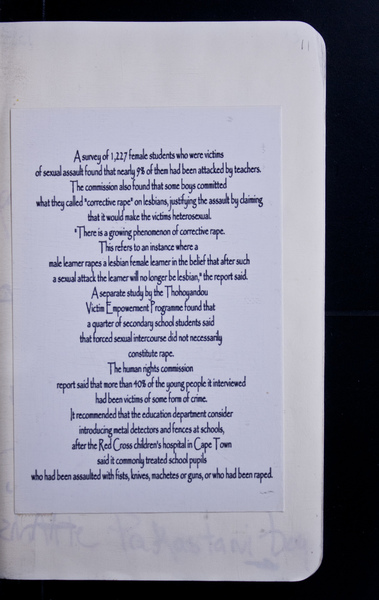 11
A survey of 1,227 female students who were victims
of sexual assault found that nearly 9% of them had been attacked by teachers.
The commission also found that some boys committed
what they called "corrective rape" on lesbians, justifying the assault by claiming
that it would make the victims heterosexual.
"There is a growing phenomenon of corrective rape.
This refers to an instance where a
male learner rapes a lesbian female learner in the belief that after such
a sexual attack the learner will no longer be lesbian," the report said.
A separate study by the Thohoyandou
Victim Empowerment Programme found that
a quarter of secondary school students said
that forced sexual intercourse did not necessarily
constitute rape.
The human rights commission
report said that more than 40% of the young people it interviewed
had been victims of some form of crime.
It recommended that the education department consider
introducing metal detectors and fences at schools,
after the Red Cross children's hospital in Cape Town
said it commonly treated school pupils
who had been assaulted with fists, knives, machetes or guns, or who had been raped.